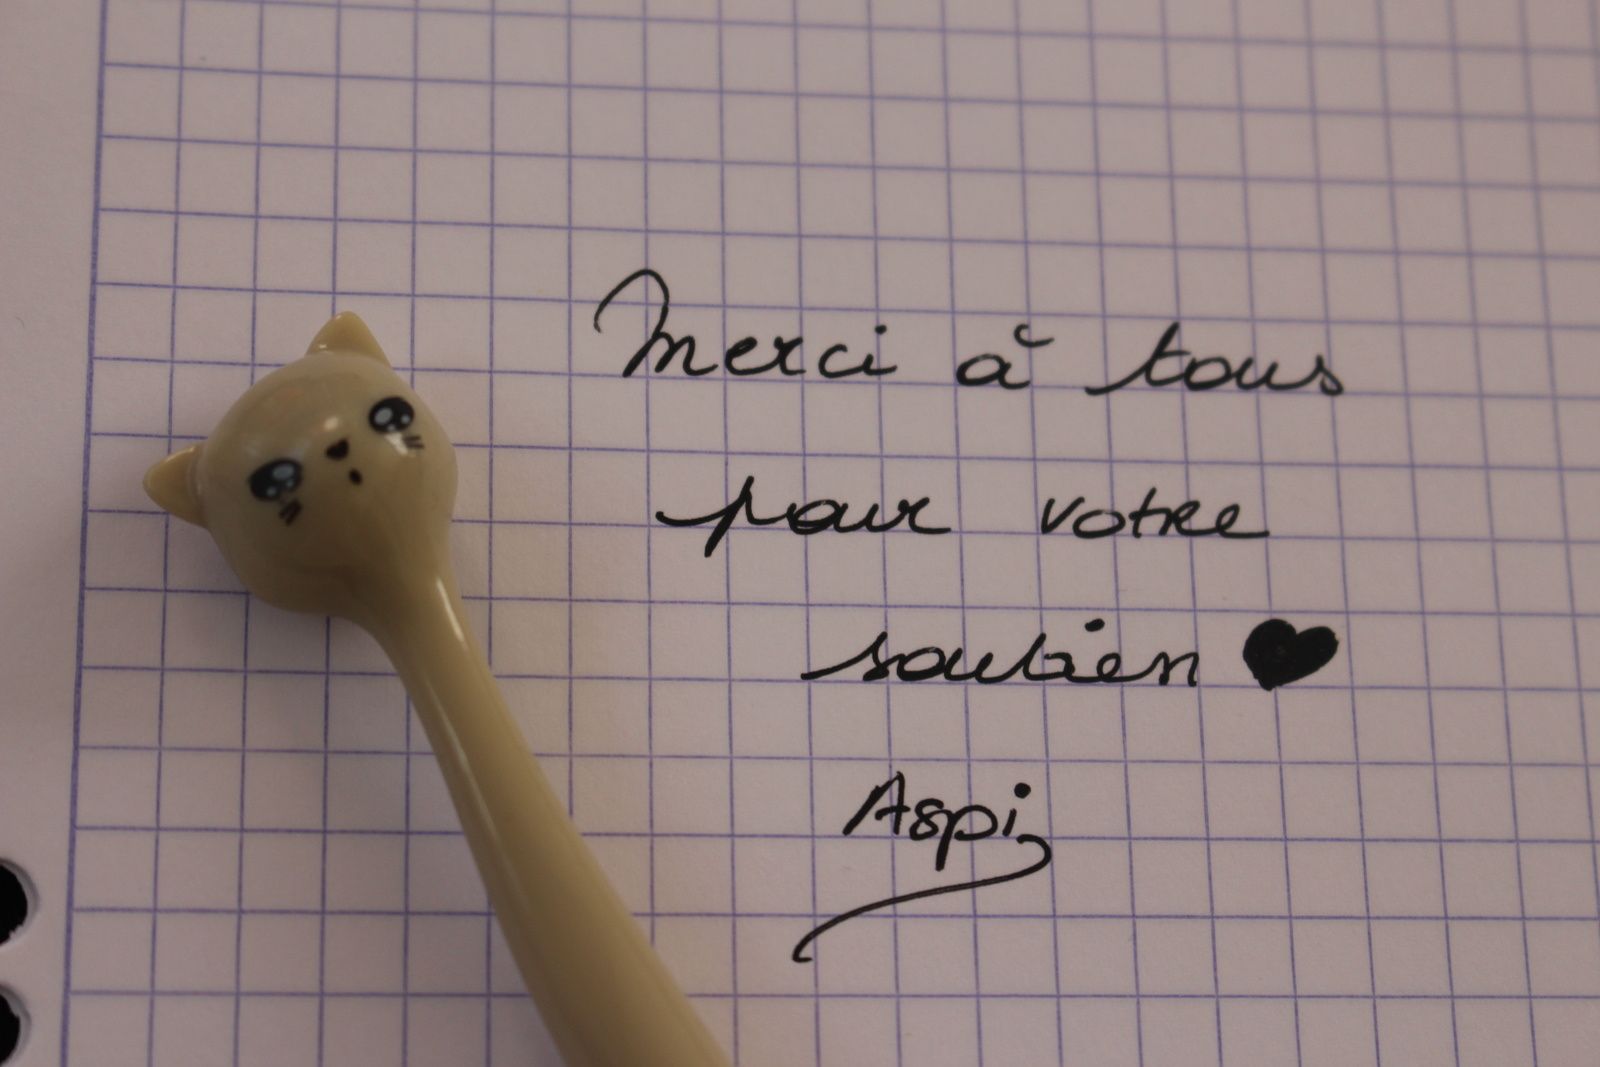 Merci à tous
pour votre
soutien ♥
Aspi